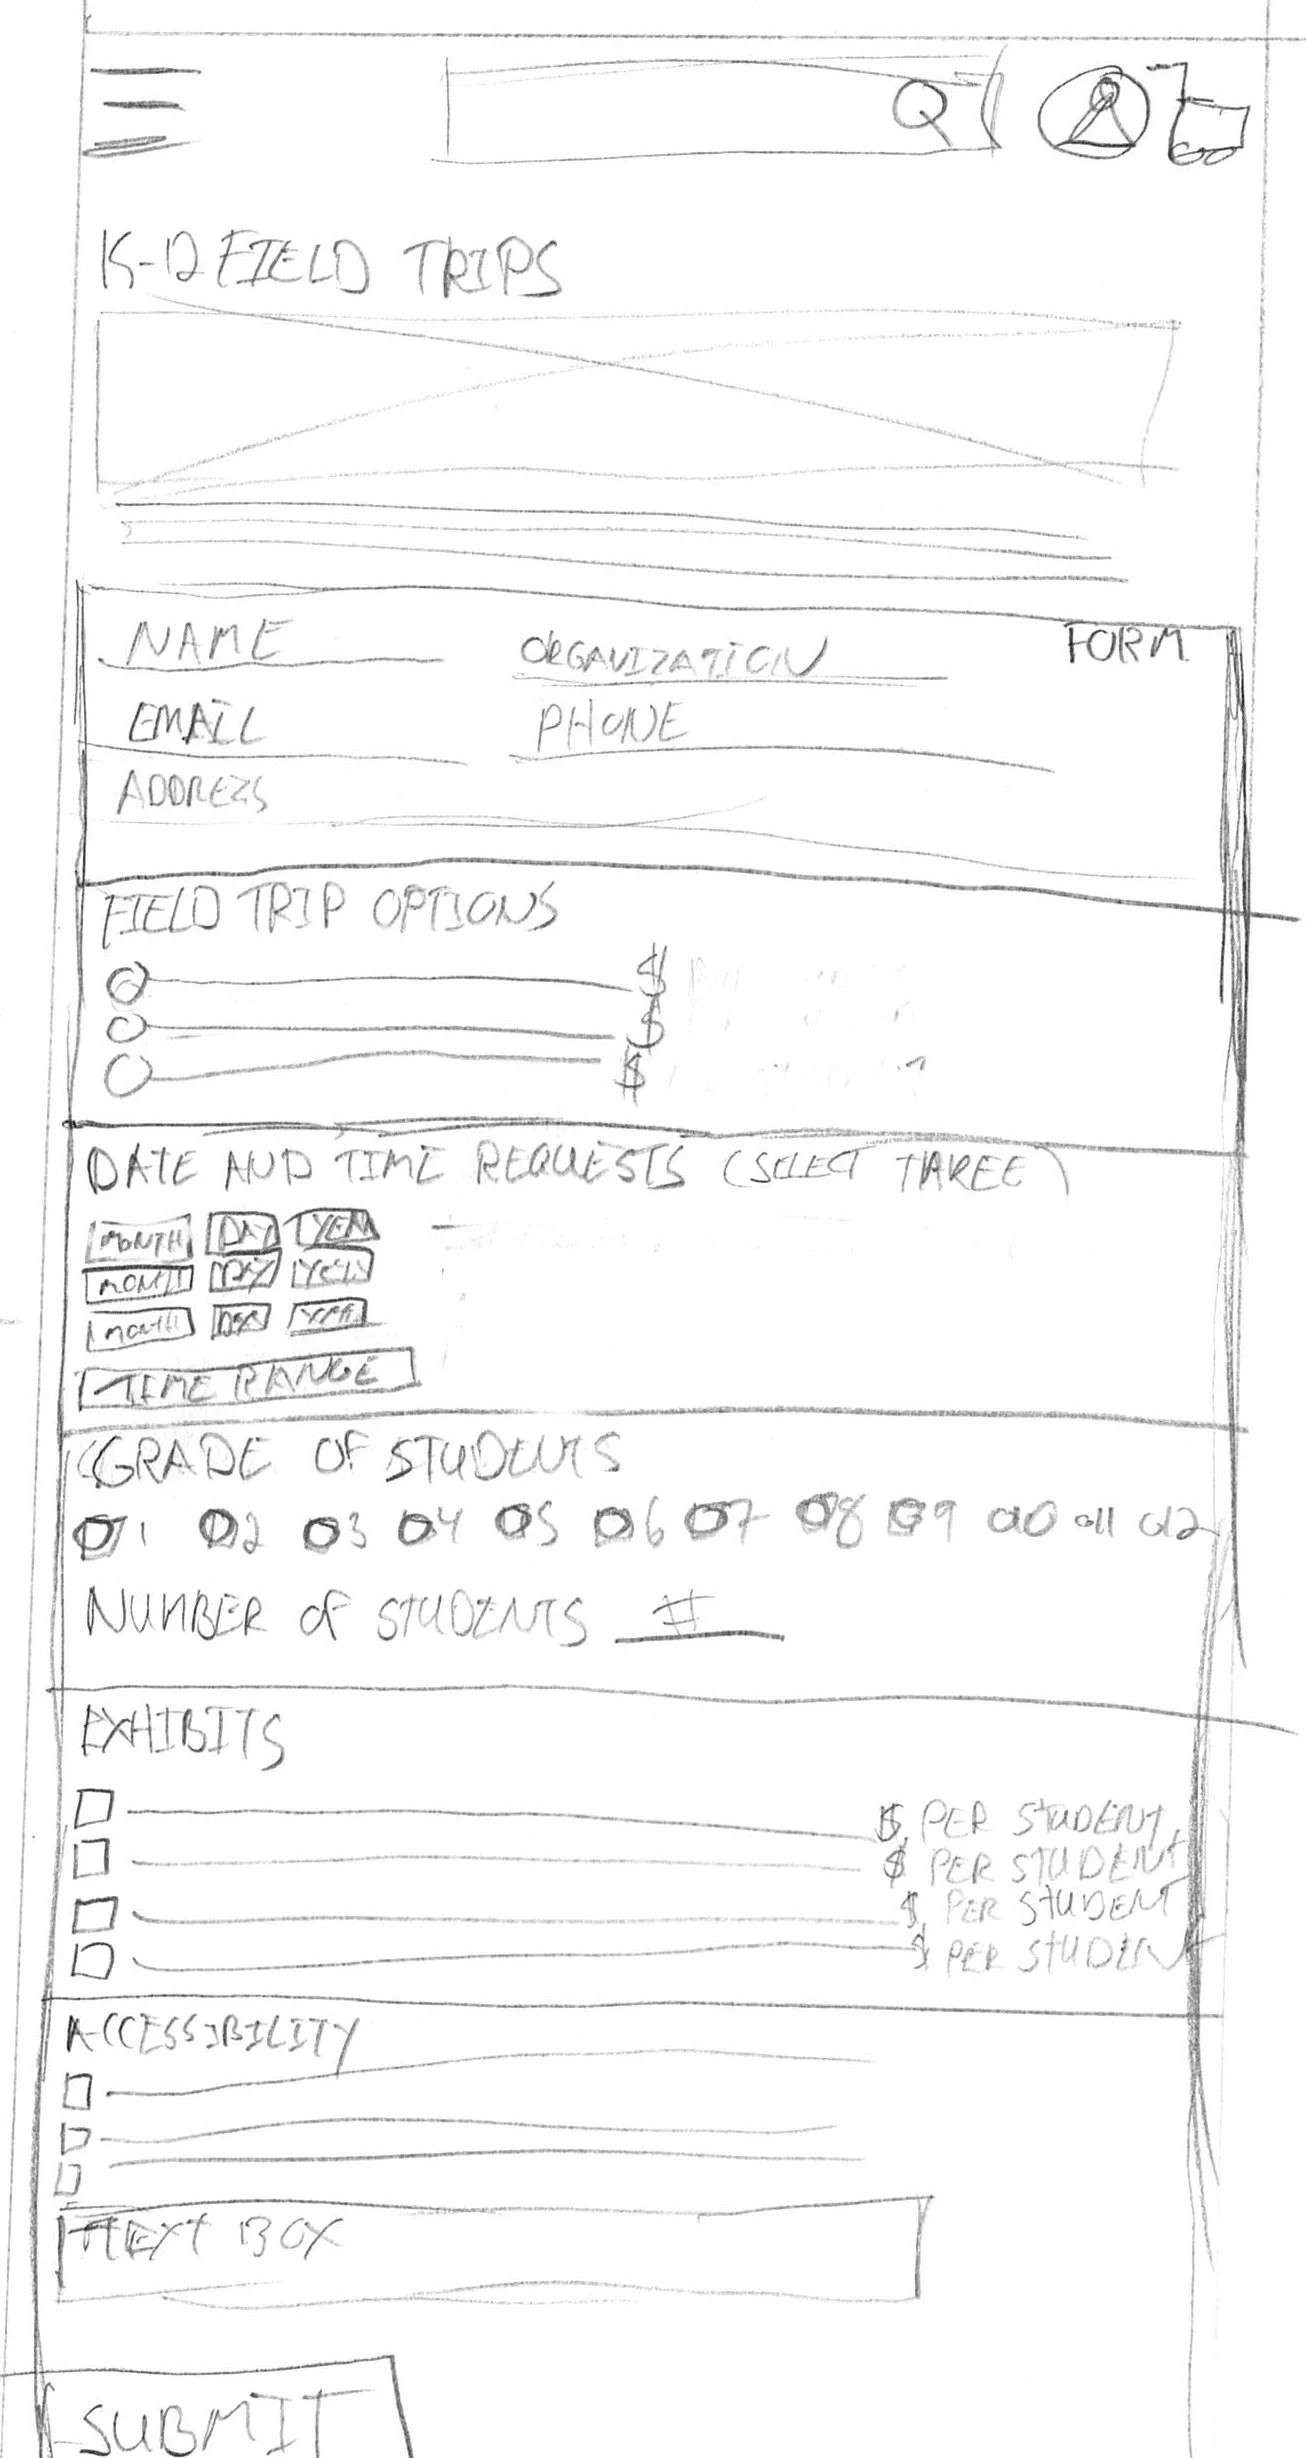 K-12 FIELD TRIPS
NAME ORGANIZATION FORM
EMAIL PHONE
ADDRESS
FIELD TRIP OPTIONS
$
$
$
DATE AND TIME REQUESTS (SELECT THREE)
MONTH DAY YEAR
MONTH DAY YEAR
MONTH DAY YEAR
TIME RANGE
GRADE OF STUDENTS
1 2 3 4 5 6 7 8 9 10 11 12
NUMBER OF STUDENTS #
EXHIBITS
$ PER STUDENT
$ PER STUDENT
$ PER STUDENT
$ PER STUDENT
ACCESSIBILITY
TEXT BOX
SUBMIT